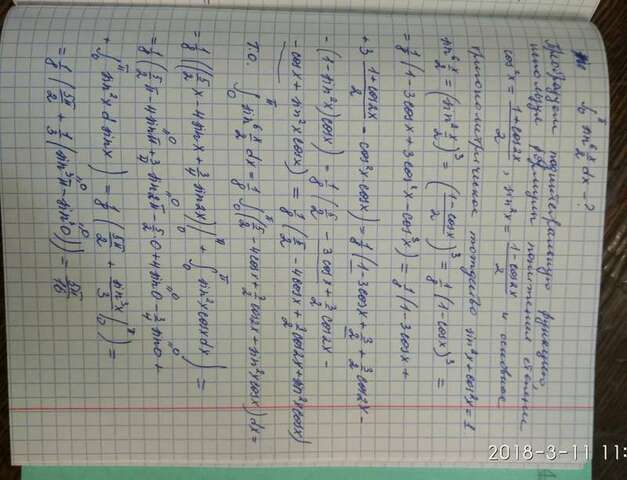 ∫₀^π sin⁶ x/2 dx - ?
Преобразуем подынтегральную функцию
используя формулы понижения степени
cos²x = (1+cos2x)/2, sin²x = (1-cos2x)/2 и основное
тригонометрическое тождество sin²x+cos²x=1
sin⁶ x/2 = (sin² x/2)³ = ((1-cosx)/2)³ = 1/8 (1-cosx)³ =
= 1/8 (1-3cosx+3cos²x-cos³x) = 1/8 (1-3cosx+
+3 (1+cos2x)/2 - cos²x·cosx) = 1/8 (1-3cosx+3/2+3/2 cos2x-
-(1-sin²x)cosx) = 1/8 (5/2 - 3cosx+3/2 cos2x-
-cosx+sin²x cosx) = 1/8 (5/2 - 4cosx+3/2 cos2x+sin²x cosx)
Т.о. ∫₀^π sin⁶ x/2 dx = 1/8 ∫₀^π (5/2 - 4cosx+3/2 cos2x+sin²x cosx)dx=
= 1/8 ((5/2 x - 4sinx+3/4 sin2x)|₀^π + ∫₀^π sin²x cosx dx) =
= 1/8 (5π/2 - 4sinπ+3/4 sin2π - 5/2·0+4sin0-3/4 sin0+
+ ∫₀^π sin²x d sinx) = 1/8 (5π/2 + sin³x/3 |₀^π) =
= 1/8 (5π/2 + 1/3 (sin³π - sin³0)) = 5π/16
2018-3-11 11: